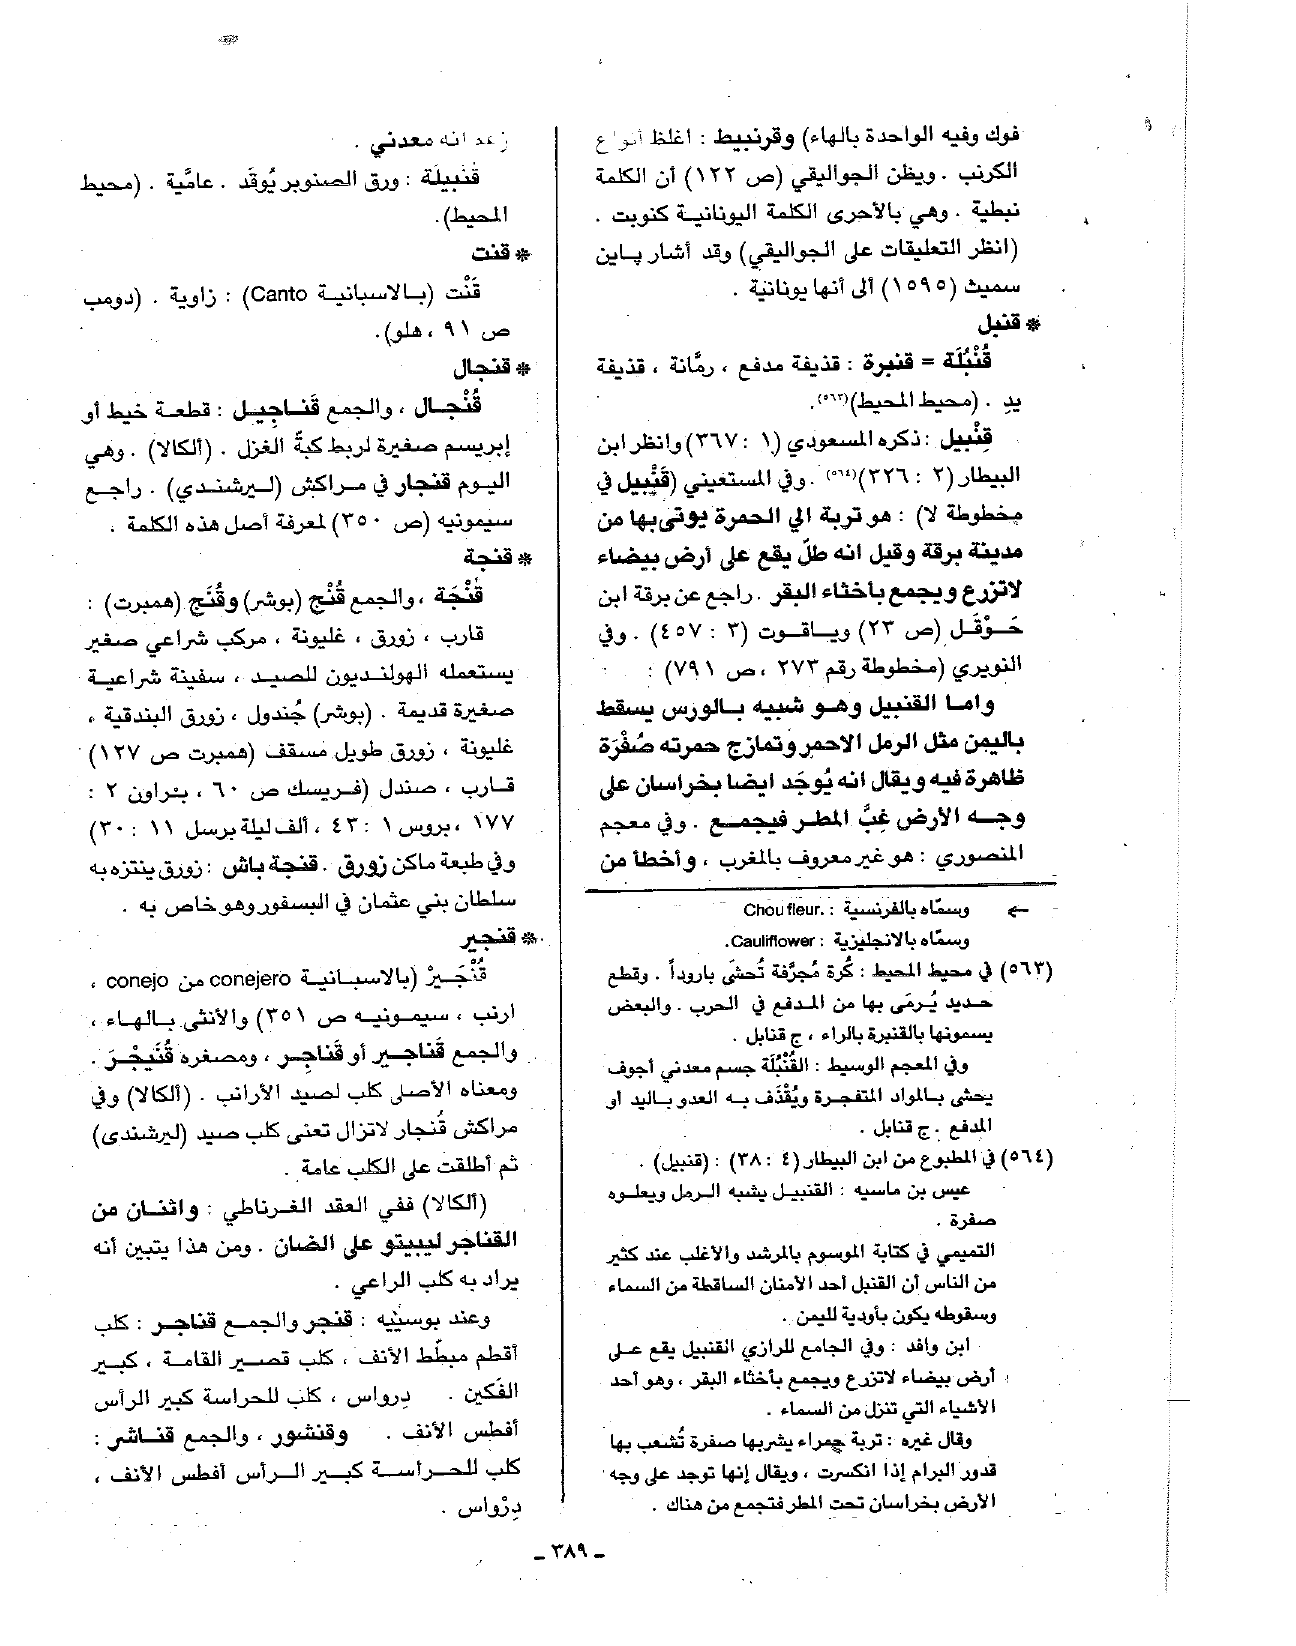 فوك وفيه الواحدة بالهاء) وقرنبيط : اغلظ أنواع
الكرنب . ويظن الجواليقي (ص ١٢٢) أن الكلمة
نبطية . وهي بالأحرى الكلمة اليونانية كنوبت .
(انظر التعليقات على الجواليقي) وقد أشار پاين
سميث (١٥٩٥) ألى أنها يونانية .
* قنبل
قُنْبُلَة = قنبرة : قذيفة مدفع ، رمَّانة ، قذيفة
يدٍ . (محيط المحيط)(٥٦٣).
قِنْبِيل : ذكره المسعودي (١ : ٣٦٧) وانظر ابن
البيطار (٢ : ٣٢٦)(٥٦٤) . وفي المستعيني (قَنْبِيل في
مخطوطة لا) : هو تربة الي الحمرة يوتى بها من
مدينة برقة وقيل انه طلّ يقع على أرض بيضاء
لاتزرع ويجمع باخثاء البقر . راجع عن برقة ابن
حَوْقَل (ص ٢٣) وياقوت (٣ : ٤٥٧) . وفي
النويري (مخطوطة رقم ٢٧٣ ، ص ٧٩١) :
واما القنبيل وهو شبيه بالورس يسقط
باليمن مثل الرمل الاحمر وتمازج حمرته صُفْرَة
ظاهرة فيه ويقال انه يُوجَد ايضا بخراسان على
وجه الأرض غِبَّ المطر فيجمع . وفي معجم
المنصوري : هو غير معروف بالمغرب ، وأخطأ من
← وسمّاه بالفرنسية : .Chou fleur
وسمّاه بالانجليزية : Cauliflower.
(٥٦٣) في محيط المحيط : كُرة مُجوَّفة تُحشَى باروداً . وقطع
حديد يُرمَى بها من المدفع في الحرب . والبعض
يسمونها بالقنبرة بالراء ، ج قنابل .
وفي المعجم الوسيط : القُنْبُلَة جسم معدني أجوف
يحشى بالمواد المتفجرة ويُقْذَف به العدو باليد أو
المدفع . ج قنابل .
(٥٦٤) في المطبوع من ابن البيطار (٤ : ٣٨) : (قنبيل) .
عيس بن ماسيه : القنبيل يشبه الرمل ويعلوه
صفرة .
التميمي في كتابة الموسوم بالمرشد والاغلب عند كثير
من الناس أن القنبل أحد الأمنان الساقطة من السماء
وسقوطه يكون بأودية لليمن .
ابن وافد : وفي الجامع للرازي القنبيل يقع على
أرض بيضاء لاتزرع ويجمع بأخثاء البقر ، وهو أحد
الأشياء التي تنزل من السماء .
وقال غيره : تربة حمراء يشربها صفرة تُشعب بها
قدور البرام إذا انكسرت ، ويقال إنها توجد على وجه
الأرض بخراسان تحت المطر فتجمع من هناك .
زعم انه معدني .
قَنْبِيلَة : ورق الصنوبر يُوقَد . عامّية . (محيط
المحيط).
* قنت
قَنْت (بالاسبانية Canto) : زاوية . (دومب
ص ٩١ ، هلو).
* قنجال
قُنْجال ، والجمع قَناجِيل : قطعة خيط أو
إبريسم صغيرة لربط كبةّ الغزل . (ألكالا) . وهي
اليوم قنجار في مراكش (ليرشندي) . راجع
سيمونيه (ص ٣٥٠) لمعرفة أصل هذه الكلمة .
* قنجة
قَنْجَة ، والجمع قُنْج (بوشر) وقُنَج (همبرت) :
قارب ، زورق ، غليونة ، مركب شراعي صغير
يستعمله الهولنديون للصيد ، سفينة شراعية
صغيرة قديمة . (بوشر) جُندول ، زورق البندقية ،
غليونة ، زورق طويل مسقف (همبرت ص ١٢٧)
قارب ، صندل (فريسك ص ٦٠ ، بتراون ٢ :
١٧٧ ، بروس ١ : ٤٣ ، ألف ليلة برسل ١١ : ٣٠)
وفي طبعة ماكن زورق . قنجة باش : زورق يتنزه به
سلطان بني عثمان في البسفور وهو خاص به .
* قنجير
قُنْجَيرْ (بالاسبانية conejero من conejo ،
ارنب ، سيمونيه ص ٣٥١) والأنثى بالهاء ،
والجمع قَناجير أو قَناجِر ، ومصغره قُنَيجْرَ .
ومعناه الأصلى كلب لصيد الأرانب . (ألكالا) وفي
مراكش قُنجار لاتزال تعنى كلب صيد (ليرشندي)
ثم أطلقت على الكلب عامة .
(ألكالا) ففي العقد الغرناطي : واثنان من
القناجر ليبيتو على الضان . ومن هذا يتبين أنه
يراد به كلب الراعي .
وعند بوسييه : قنجر والجمع قناجر : كلب
أقطم مبطّط الأنف ، كلب قصير القامة ، كبير
الفَكين . دِرواس ، كلب للحراسة كبير الرأس
أفطس الأنف . وقنشور ، والجمع قناشر :
كلب للحراسة كبير الرأس أفطس الأنف ،
دِرْواس .
ـ ٣٨٩ ـ